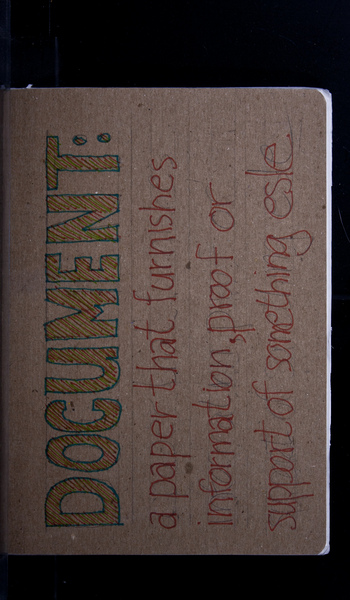 DOCUMENT:
a paper that furnishes
information, proof or
support of something esle.